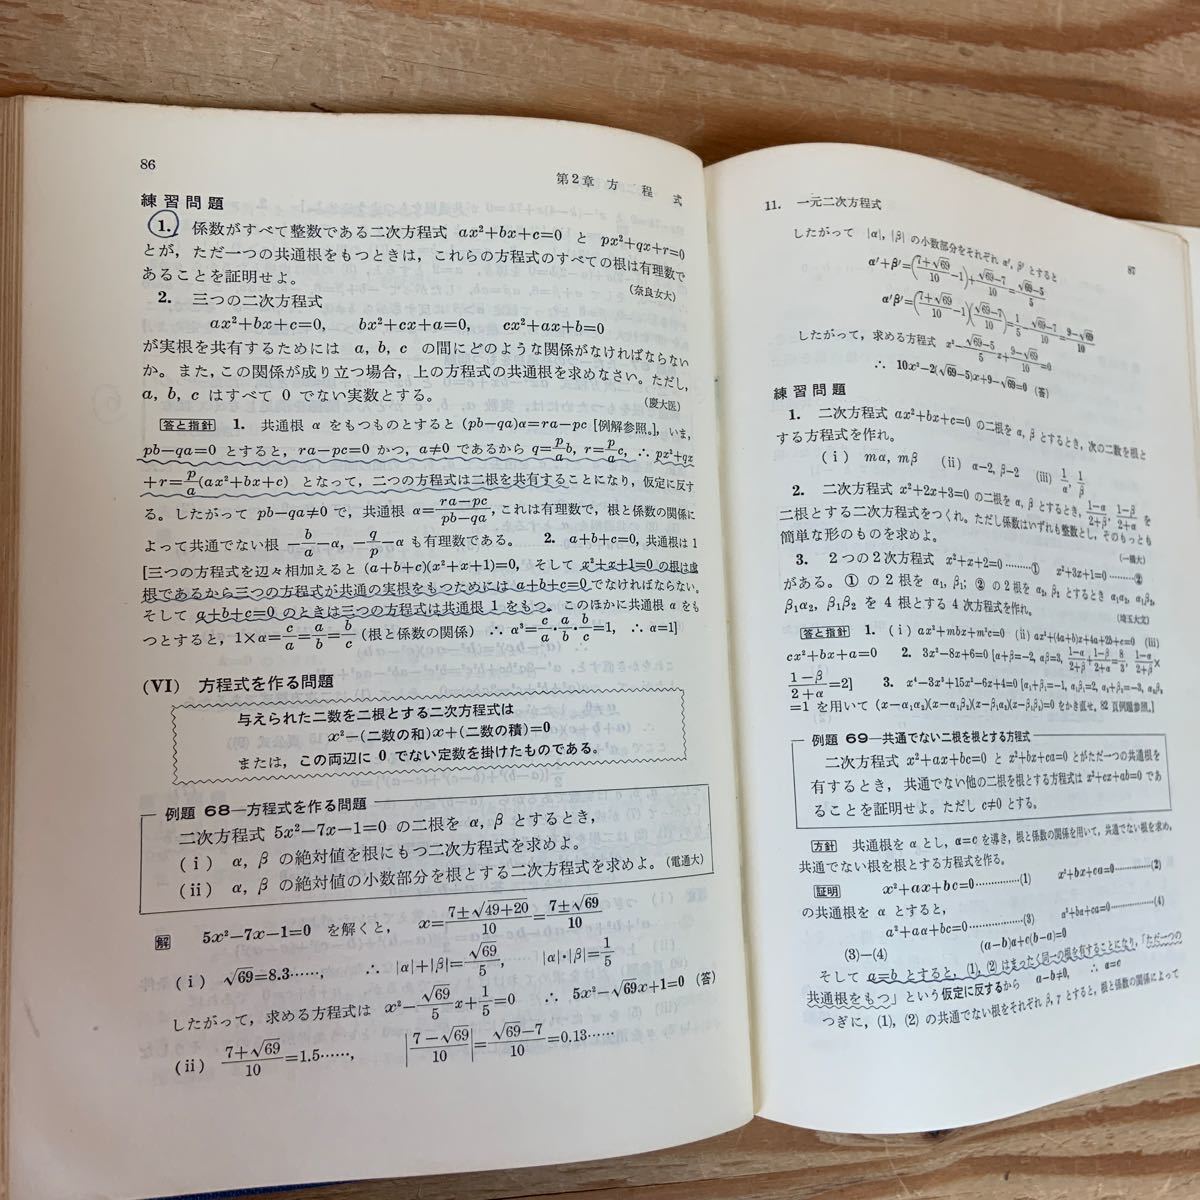 86
第2章 方 程 式
練習問題
1. 係数がすべて整数である二次方程式 ax²+bx+c=0 と px²+qx+r=0
とが，ただ一つの共通根をもつときは，これらの方程式のすべての根は有理数で
あることを証明せよ。 (奈良女大)
2. 三つの二次方程式
ax²+bx+c=0, bx²+cx+a=0, cx²+ax+b=0
が実根を共有するためには a, b, c の間にどのような関係がなければならない
か。また，この関係が成り立つ場合，上の方程式の共通根を求めなさい。ただし，
a, b, c はすべて 0 でない実数とする。 (慶大医)
答と指針 1. 共通根 α をもつものとすると (pb−qa)α=ra−pc [例解参照。]，いま，
pb−qa=0 とすると，ra−pc=0 かつ，a≠0 であるから q=p/a b, r=p/a c, ∴ px²+qx
+r=p/a(ax²+bx+c) となって，二つの方程式は二根を共有することになり，仮定に反す
る。したがって pb−qa≠0 で，共通根 α=(ra−pc)/(pb−qa)，これは有理数で，根と係数の関係に
よって共通でない根 −b/a−α, −q/p−α も有理数である。 2. a+b+c=0, 共通根は 1
[三つの方程式を辺々相加えると (a+b+c)(x²+x+1)=0, そして x²+x+1=0 の根は虚
根であるから三つの方程式が共通の実根をもつためには a+b+c=0 でなければならない。
そして a+b+c=0 のときは三つの方程式は共通根 1 をもつ。このほかに共通根 α をも
つとすると，1×α=c/a=a/b=b/c (根と係数の関係) ∴ α³=c/a・a/b・b/c=1, ∴ α=1]
(VI) 方程式を作る問題
与えられた二数を二根とする二次方程式は
x²−(二数の和)x+(二数の積)=0
または，この両辺に 0 でない定数を掛けたものである。
例題 68—方程式を作る問題
二次方程式 5x²−7x−1=0 の二根を α, β とするとき，
(i) α, β の絶対値を根にもつ二次方程式を求めよ。
(ii) α, β の絶対値の小数部分を根とする二次方程式を求めよ。(電通大)
解 5x²−7x−1=0 を解くと， x=(7±√49+20)/10=(7±√69)/10
(i) √69=8.3……, ∴ |α|+|β|=√69/5, |α|・|β|=1/5
したがって，求める方程式は x²−√69/5 x+1/5=0 ∴ 5x²−√69x+1=0 (答)
(ii) (7+√69)/10=1.5……, |(7−√69)/10|=(√69−7)/10=0.13……
11. 一元二次方程式
87
したがって |α|, |β| の小数部分をそれぞれ α′, β′ とすると
α′+β′=((7+√69)/10−1)+(√69−7)/10=(√69−5)/5
α′β′=((7+√69)/10−1)((√69−7)/10)=1/5−(√69−7)/10=(9−√69)/10
したがって，求める方程式 x²−(√69−5)/5 x+(9−√69)/10=0
∴ 10x²−2(√69−5)x+9−√69=0 (答)
練習問題
1. 二次方程式 ax²+bx+c=0 の二根を α, β とするとき，次の二数を根と
する方程式を作れ。
(i) mα, mβ (ii) α−2, β−2 (iii) 1/α, 1/β
2. 二次方程式 x²+2x+3=0 の二根を α, β とするとき，(1−α)/(2+β), (1−β)/(2+α) を
二根とする二次方程式をつくれ。ただし係数はいずれも整数とし，そのもっとも
簡単な形のものを求めよ。 (一橋大)
3. 2つの2次方程式 x²+x+2=0………① x²+3x+1=0………②
がある。①の2根を α₁, β₁; ②の2根を α₂, β₂ とするとき α₁α₂, α₁β₂,
β₁α₂, β₁β₂ を4根とする4次方程式を作れ。 (埼玉大文)
答と指針 1. (i) ax²+mbx+m²c=0 (ii) ax²+(4a+b)x+4a+2b+c=0 (iii)
cx²+bx+a=0 2. 3x²−8x+6=0 [α+β=−2, αβ=3, (1−α)/(2+β)+(1−β)/(2+α)=8/3, (1−α)/(2+β)×
(1−β)/(2+α)=2] 3. x⁴−3x³+15x²−6x+4=0 [α₁+β₁=−1, α₁β₁=2, α₂+β₂=−3, α₂β₂
=1 を用いて (x−α₁α₂)(x−α₁β₂)(x−β₁α₂)(x−β₁β₂)=0 をかき直せ，82 頁例題参照。]
例題 69—共通でない二根を根とする方程式
二次方程式 x²+ax+bc=0 と x²+bx+ca=0 とがただ一つの共通根を
有するとき，共通でない他の二根を根とする方程式は x²+cx+ab=0 であ
ることを証明せよ。ただし c≠0 とする。
方針 共通根を α とし，α=c を導き，根と係数の関係を用いて，共通でない根を求め，
共通でない根を根とする方程式を作る。
証明 x²+ax+bc=0……………(1) x²+bx+ca=0……………(2)
の共通根を α とすると，
α²+aα+bc=0……………(3) α²+bα+ca=0……………(4)
(3)−(4) (a−b)α+c(b−a)=0
そして a=b とすると，(1), (2) はまったく同一の根を有することになり，「ただ一つの
共通根をもつ」という仮定に反するから a−b≠0, ∴ α=c
つぎに，(1), (2) の共通でない根をそれぞれ β, γ とすると，根と係数の関係によって